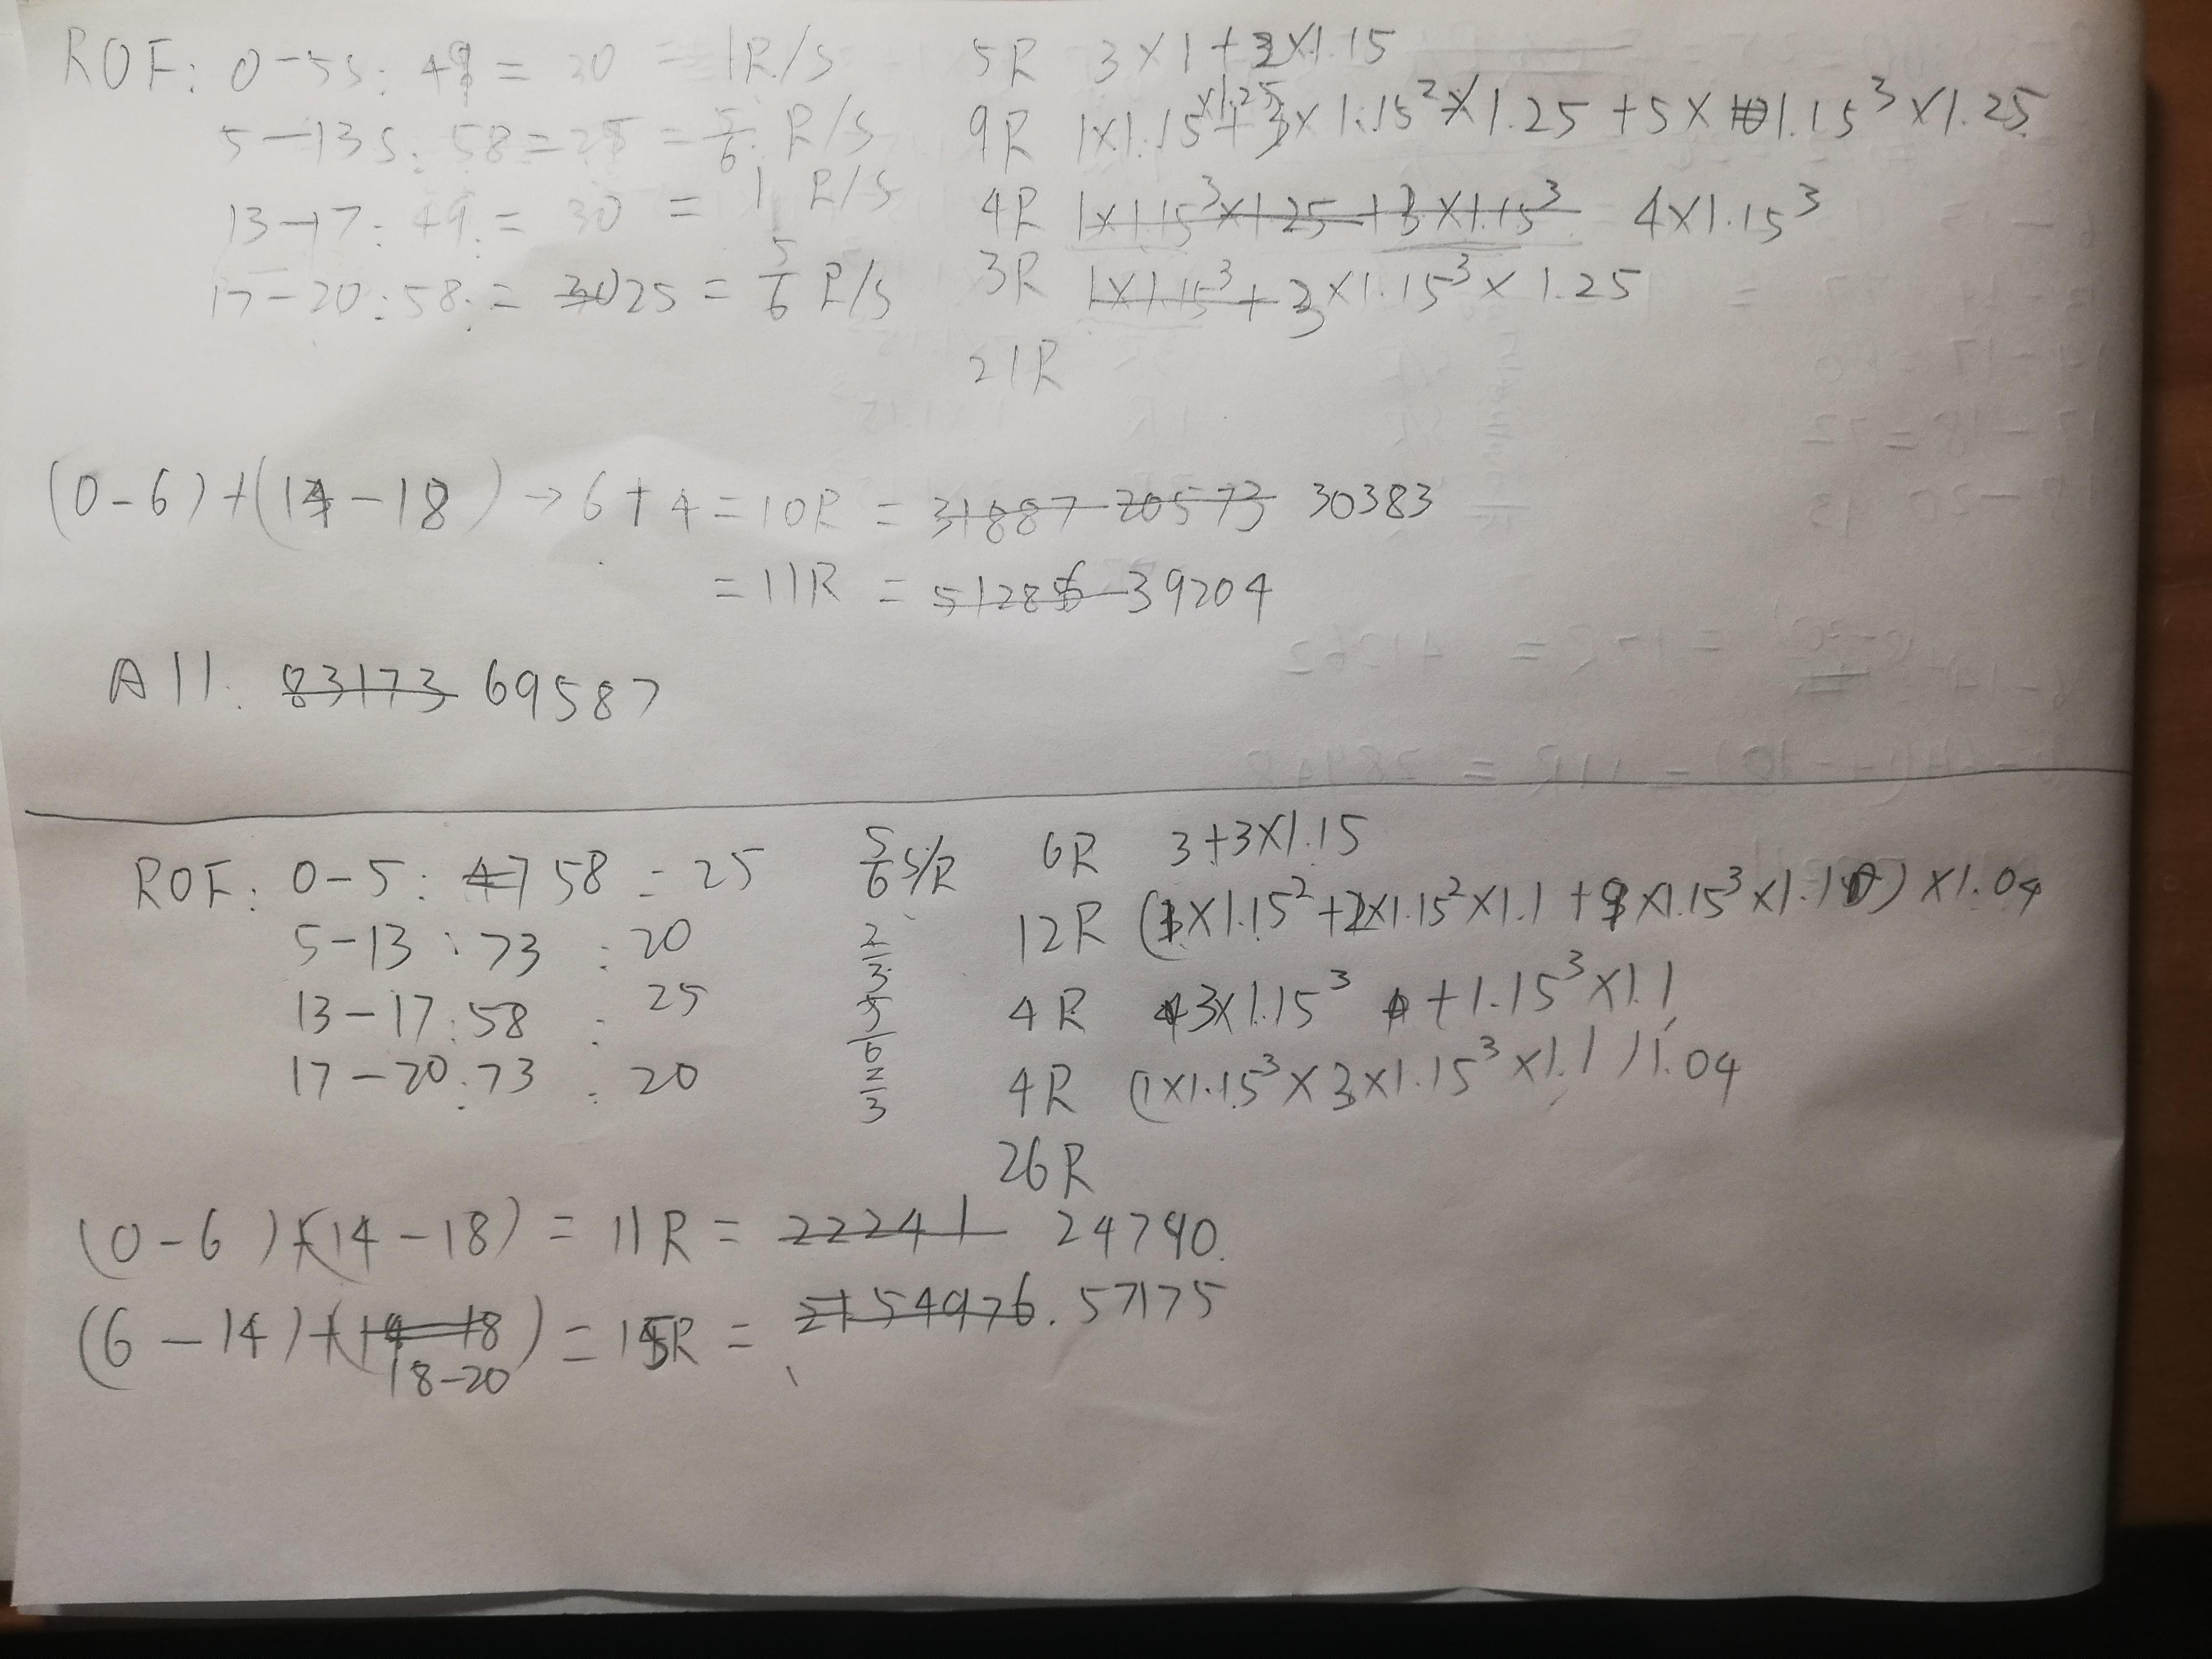 ROF: 0-5s: 49 = 30 = 1R/s 5R 3×1+2×1.15
5-13s: 58 = 25 = 5/6 R/s 9R 1×1.15×1.25+3×1.15²×1.25+5×1.15³×1.25
13-17: 49: = 30 = 1 R/s 4R 1×1.15³×1.25+3×1.15³ 4×1.15³
17-20: 58: = 30 25 = 5/6 R/s 3R 1×1.15³+3×1.15³×1.25
21R
(0-6)+(14-18) → 6+4 = 10R = 31887 20573 30383
= 11R = 51286 39204
All: 83173 69587
ROF: 0-5: 47 58 = 25 5/6 s/R 6R 3+3×1.15
5-13: 73 : 20 2/3 12R (1×1.15²+2×1.15²×1.1+9×1.15³×1.1)×1.04
13-17: 58 : 25 5/6 4R 3×1.15³+1.15³×1.1
17-20: 73 : 20 2/3 4R (1×1.15³×3×1.15³×1.1)1.04
26R
(0-6)+(14-18) = 11R = 22241 24740.
(6-14)+(14-18) = 15R = 54976. 57175
18-20